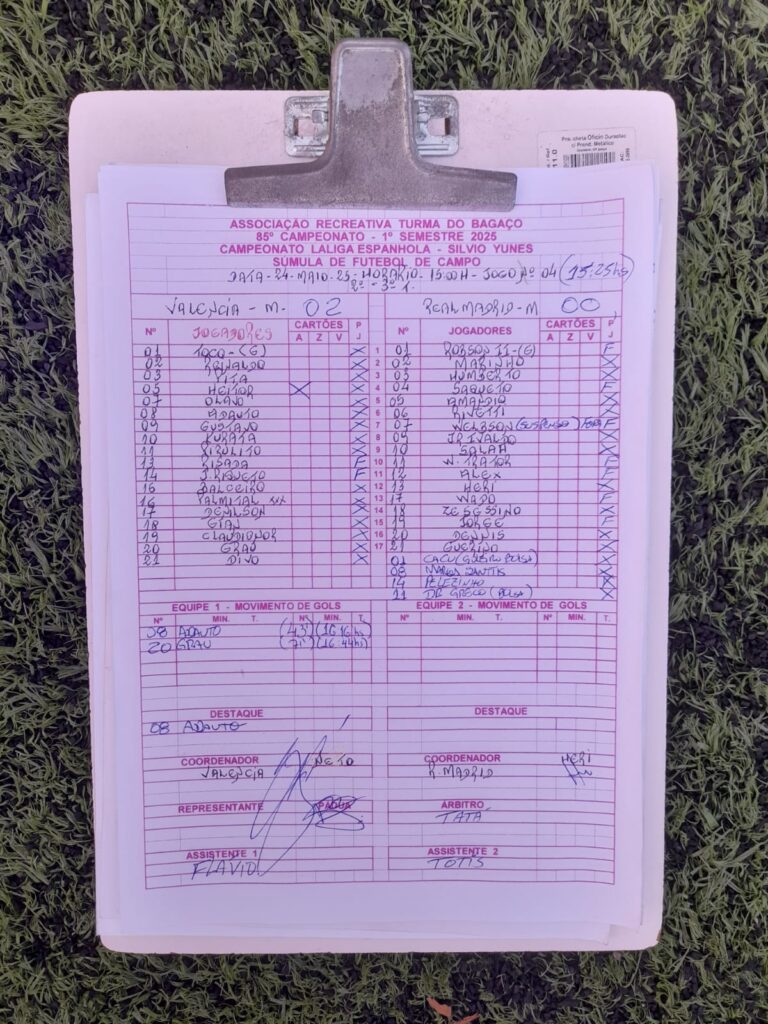 ASSOCIAÇÃO RECREATIVA TURMA DO BAGAÇO
85º CAMPEONATO - 1º SEMESTRE 2025
CAMPEONATO LALIGA ESPANHOLA - SILVIO YUNES
SÚMULA DE FUTEBOL DE CAMPO
DATA - 24 - MAIO - 25 - HORÁRIO - 15:00H - JOGO Nº 04 (15:25hs)
2º - 3º T.
VALENCIA - M - 02 REAL MADRID - M 00
Nº JOGADORES CARTÕES P Nº JOGADORES CARTÕES P
A Z V J A Z V J
01 TOCO - (G) X 1 01 ROBSON II - (G) F
02 REINALDO X 2 02 MARINHO X
03 PITA X 3 03 HUMBERTO X
05 HEITOR X X 4 04 SAQUETO F
07 OLAVO X 5 05 AMANDIO X
08 ADAUTO X 6 06 RIVETTI X
09 GUSTAVO X 7 07 WELBSON (SUSPENSO) FORA F
10 KURATA X 8 09 JR IVALDO X
11 HIPOLITO X 9 10 SALAH X
13 F 10 11 W. TRATOR F
14 F 11 12 ALEX F
16 BALOEIRO X 12 13 HERI X
16 PALMITAL XXX X 13 17 WADO F
17 DENILSON X 14 18 ZE SESSINO X
18 GIAN X 15 19 JORGE F
19 CLAUDIONOR X 16 20 DENNIS X
20 GRAU X 17 21 GUERINO X
21 DIVO X 01 CACU (GOLEIRO BOLSA) X
08 X
14 PELEZINHO X
11 DR GRECO (BOLSA) X
EQUIPE 1 - MOVIMENTO DE GOLS EQUIPE 2 - MOVIMENTO DE GOLS
Nº MIN. T. Nº MIN. T. Nº MIN. T. Nº MIN. T.
08 ADAUTO (43') (16:16hs)
20 GRAU (71') (16:44hs)
DESTAQUE DESTAQUE
08 ADAUTO
COORDENADOR NETO COORDENADOR HERI
VALENCIA R. MADRID
REPRESENTANTE PADUA ÁRBITRO
TATÁ
ASSISTENTE 1 ASSISTENTE 2
FLÁVIO TOTIS